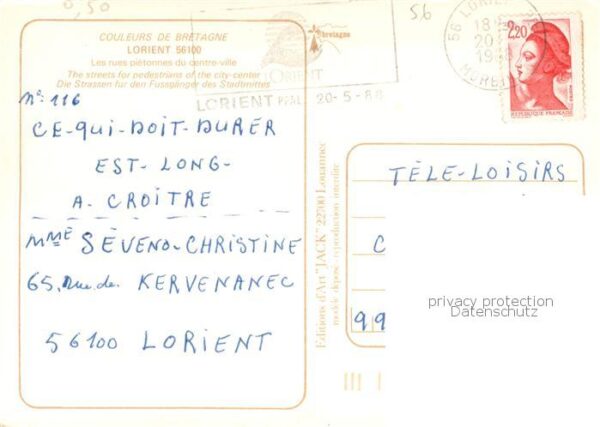 0,50
56
COULEURS DE BRETAGNE
LORIENT 56100
Les rues piétonnes du centre-ville
The streets for pedestrians of the city-center
Die Strassen für den Fussgänger des Stadtmittes
bretagne
LORIENT
LORIENT PPAL 20-5-88
56 LORIENT
18
20
19
MORBI
2,20
REPUBLIQUE FRANÇAISE
N°: 116
CE-QUI-DOIT-DURER
EST-LONG-
A-CROITRE
MME SÉVENO-CHRISTINE
65, Rue de KERVENANEC
56100 LORIENT
Editions d'Art "JACK" 22700 Louannec
modèle déposé - reproduction interdite
TÈLE-LOISIRS
C
99
privacy protection
Datenschutz